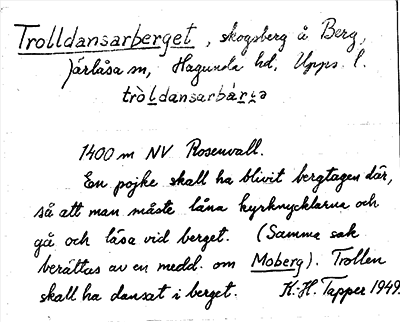 Trolldansarberget, skogsberg å Berg,
Järlåsa sn, Hagunda hd, Upps. l.
tròldansarbár̥ɩ̯ə
1400 m NV Rosenvall.
En pojke skall ha blivit bergtagen där,
så att man måste låna kyrknycklarna och
gå och läsa vid berget. (Samma sak
berättas av en medd. om Moberg). Trollen
skall ha dansat i berget. K.-H. Tapper 1949.